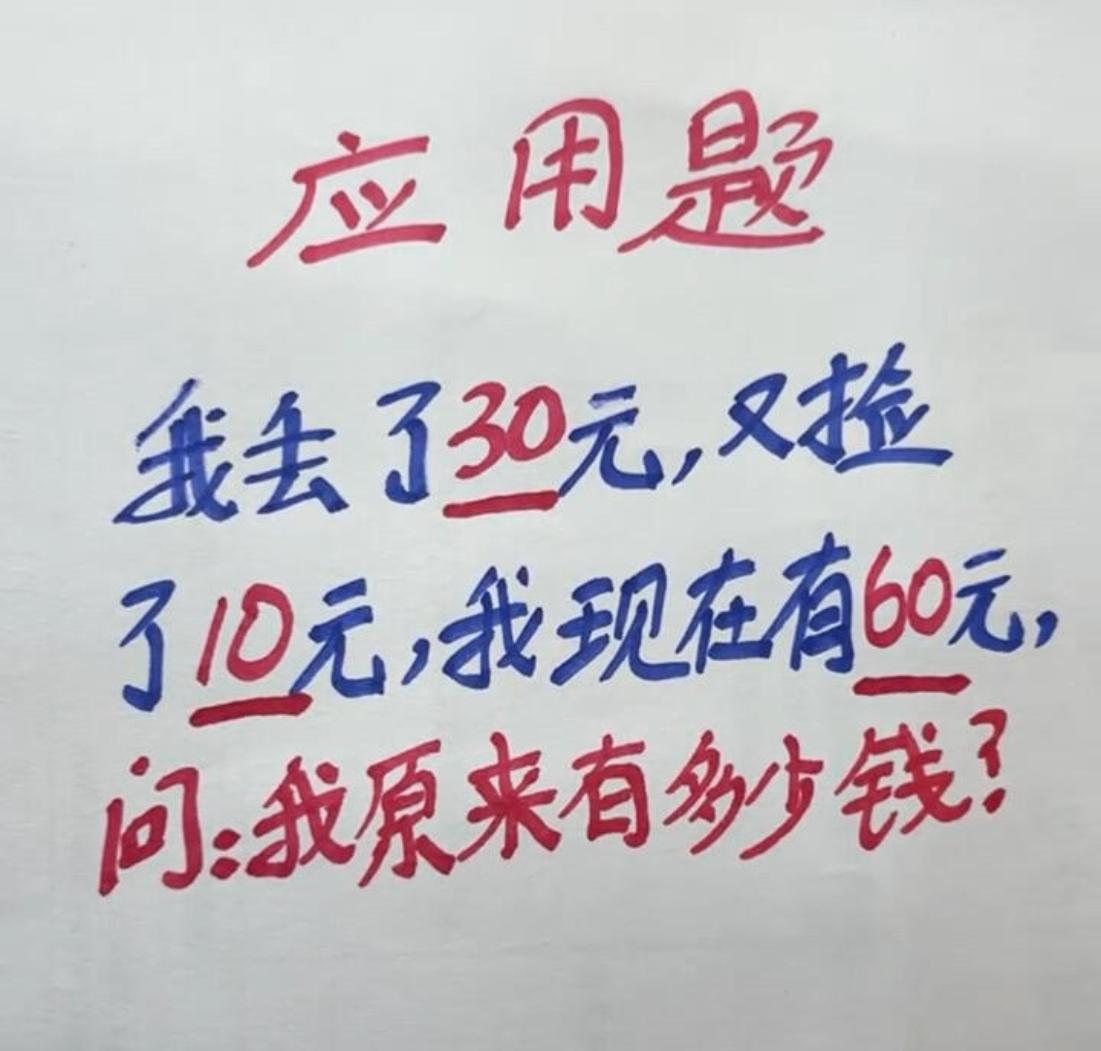 应用题
我丢了30元,又捡
了10元,我现在有60元,
问:我原来有多少钱?